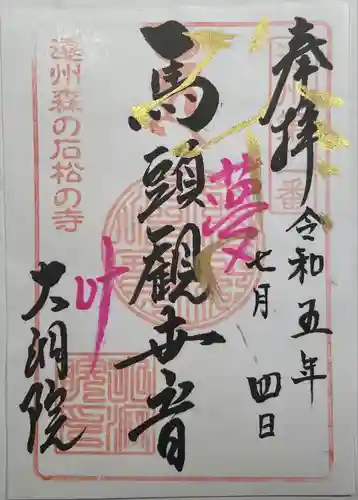 奉拝
令和五年
七月四日
馬頭観世音
夢
叶
大洞院
遠州森の石松の寺
番